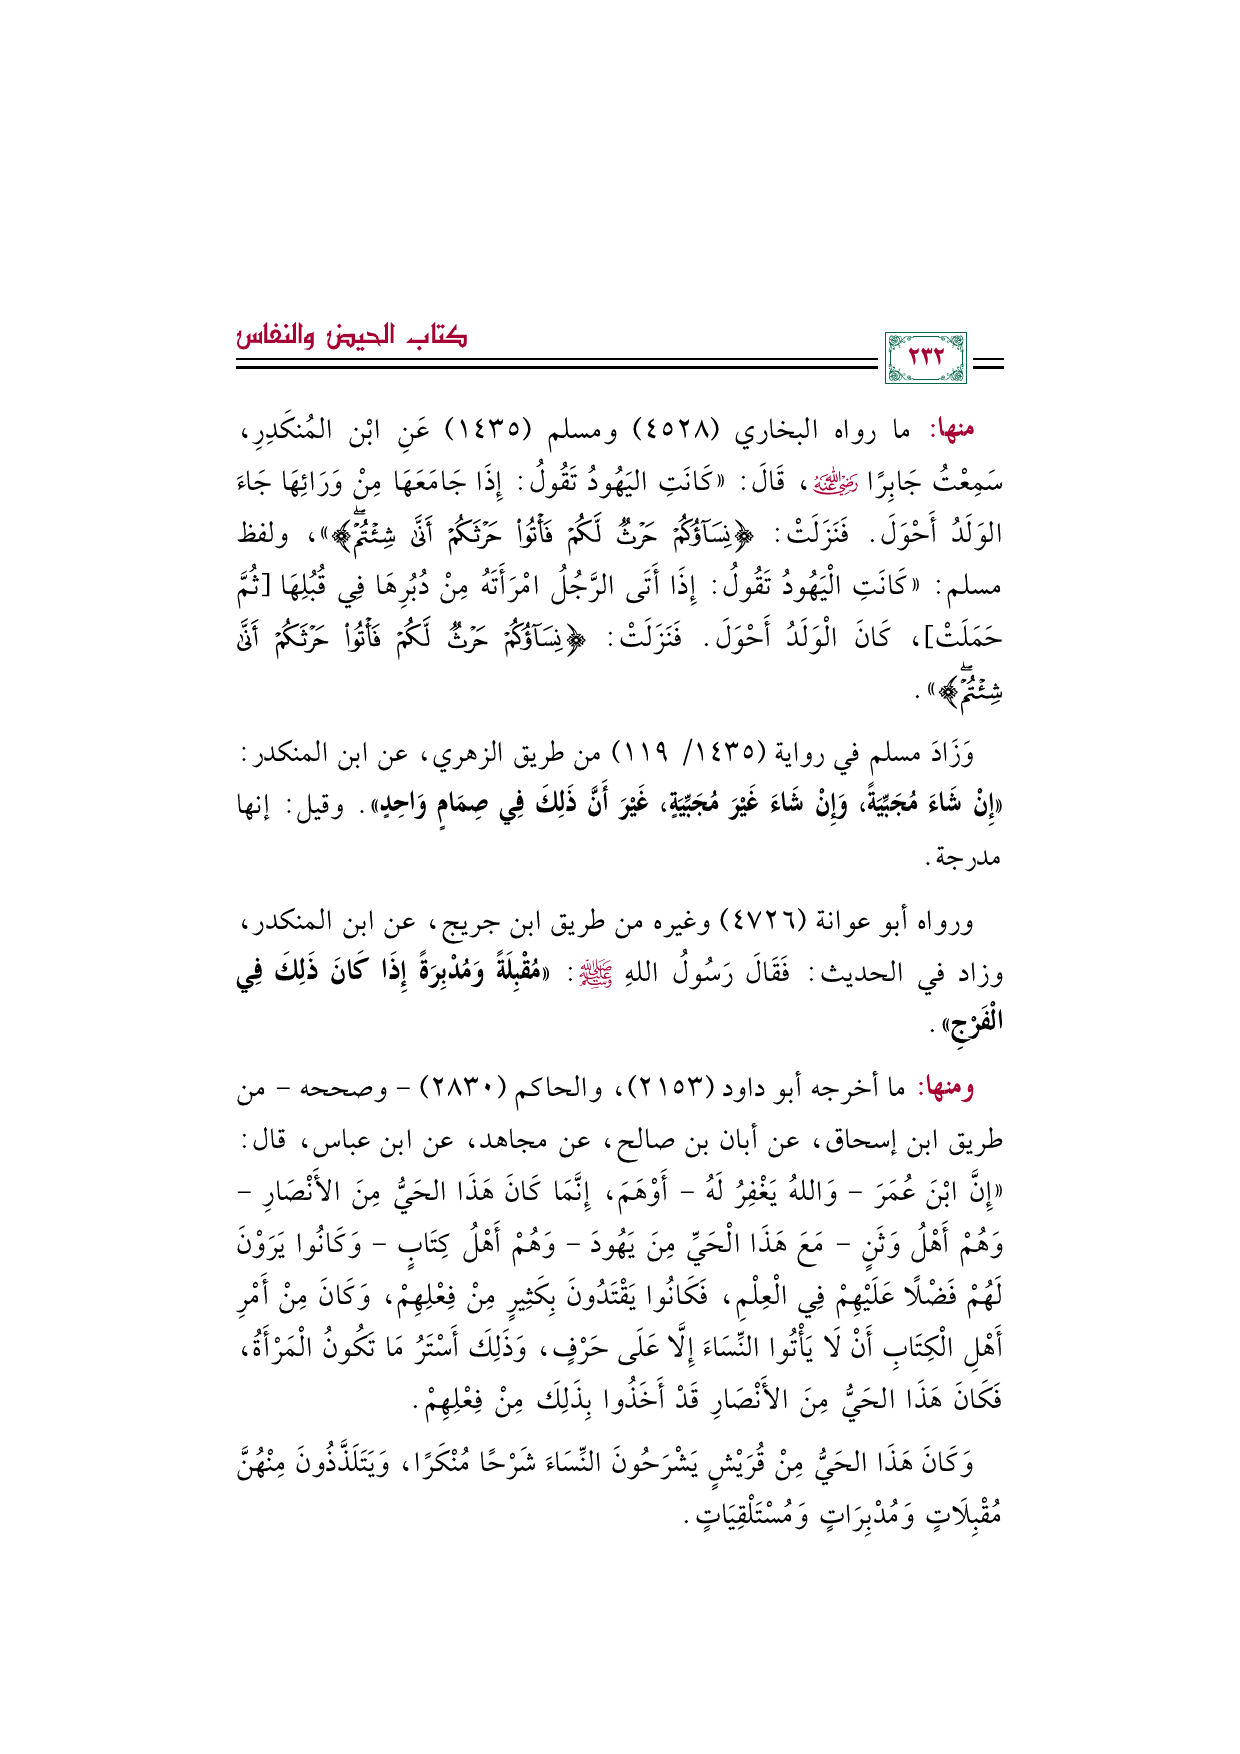 كتاب الحيض والنفاس
٢٣٢
منها: ما رواه البخاري (٤٥٢٨) ومسلم (١٤٣٥) عَنِ ابْن المُنكَدِرِ،
سَمِعْتُ جَابِرًا ﵁، قَالَ: «كَانَتِ اليَهُودُ تَقُولُ: إِذَا جَامَعَهَا مِنْ وَرَائِهَا جَاءَ
الوَلَدُ أَحْوَلَ. فَنَزَلَتْ: ﴿نِسَآؤُكُمۡ حَرۡثٞ لَّكُمۡ فَأۡتُواْ حَرۡثَكُمۡ أَنَّىٰ شِئۡتُمۡۖ﴾»، ولفظ
مسلم: «كَانَتِ الْيَهُودُ تَقُولُ: إِذَا أَتَى الرَّجُلُ امْرَأَتَهُ مِنْ دُبُرِهَا فِي قُبُلِهَا [ثُمَّ
حَمَلَتْ]، كَانَ الْوَلَدُ أَحْوَلَ. فَنَزَلَتْ: ﴿نِسَآؤُكُمۡ حَرۡثٞ لَّكُمۡ فَأۡتُواْ حَرۡثَكُمۡ أَنَّىٰ
شِئۡتُمۡۖ﴾».
وَزَادَ مسلم في رواية (١٤٣٥/ ١١٩) من طريق الزهري، عن ابن المنكدر:
«إِنْ شَاءَ مُجَبِّيَةً، وَإِنْ شَاءَ غَيْرَ مُجَبِّيَةٍ، غَيْرَ أَنَّ ذَلِكَ فِي صِمَامٍ وَاحِدٍ». وقيل: إنها
مدرجة.
ورواه أبو عوانة (٤٧٢٦) وغيره من طريق ابن جريج، عن ابن المنكدر،
وزاد في الحديث: فَقَالَ رَسُولُ اللهِ ﷺ: «مُقْبِلَةً وَمُدْبِرَةً إِذَا كَانَ ذَلِكَ فِي
الْفَرْجِ».
ومنها: ما أخرجه أبو داود (٢١٥٣)، والحاكم (٢٨٣٠) – وصححه – من
طريق ابن إسحاق، عن أبان بن صالح، عن مجاهد، عن ابن عباس، قال:
«إِنَّ ابْنَ عُمَرَ – وَاللهُ يَغْفِرُ لَهُ – أَوْهَمَ، إِنَّمَا كَانَ هَذَا الحَيُّ مِنَ الأَنْصَارِ –
وَهُمْ أَهْلُ وَثَنٍ – مَعَ هَذَا الْحَيِّ مِنَ يَهُودَ – وَهُمْ أَهْلُ كِتَابٍ – وَكَانُوا يَرَوْنَ
لَهُمْ فَضْلًا عَلَيْهِمْ فِي الْعِلْمِ، فَكَانُوا يَقْتَدُونَ بِكَثِيرٍ مِنْ فِعْلِهِمْ، وَكَانَ مِنْ أَمْرِ
أَهْلِ الْكِتَابِ أَنْ لَا يَأْتُوا النِّسَاءَ إِلَّا عَلَى حَرْفٍ، وَذَلِكَ أَسْتَرُ مَا تَكُونُ الْمَرْأَةُ،
فَكَانَ هَذَا الحَيُّ مِنَ الأَنْصَارِ قَدْ أَخَذُوا بِذَلِكَ مِنْ فِعْلِهِمْ.
وَكَانَ هَذَا الحَيُّ مِنْ قُرَيْشٍ يَشْرَحُونَ النِّسَاءَ شَرْحًا مُنْكَرًا، وَيَتَلَذَّذُونَ مِنْهُنَّ
مُقْبِلَاتٍ وَمُدْبِرَاتٍ وَمُسْتَلْقِيَاتٍ.